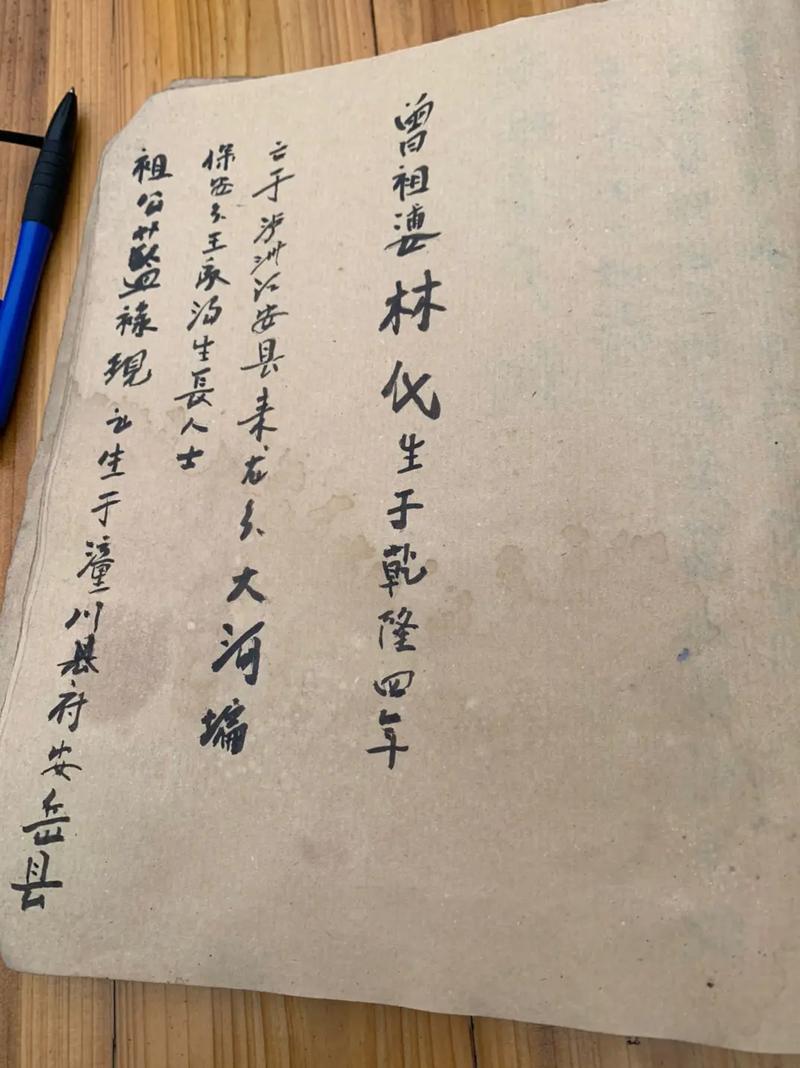 曾祖婆林氏生于乾隆四年
亡于泸洲江安县来龙乡大河塆
保安乡王家湾生長人士
祖公藍禄現亡生于潼川县府安岳县